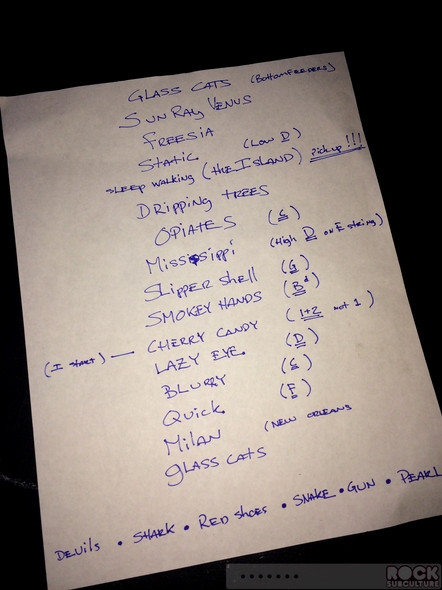 GLASS CATS (BOTTOMFEEDERS)
SUN RAY VENUS
FREESIA
STATIC (LOW D)
SLEEP WALKING (the ISLAND) pick up!!!
DRIPPING TREES
OPIATES
Mississippi (High D on E string)
SLIPPER SHELL (G)
SMOKEY HANDS
CHERRY CANDY (1+2 not 1)
(I START) — LAZY EYE (D)
BLURRY
QUICK (F)
MILAN (NEW ORLEANS
GLASS CATS
DEVILS • SHARK • RED SHOES • SNAKE • GUN • PEARL
ROCK
SUBCULTURE